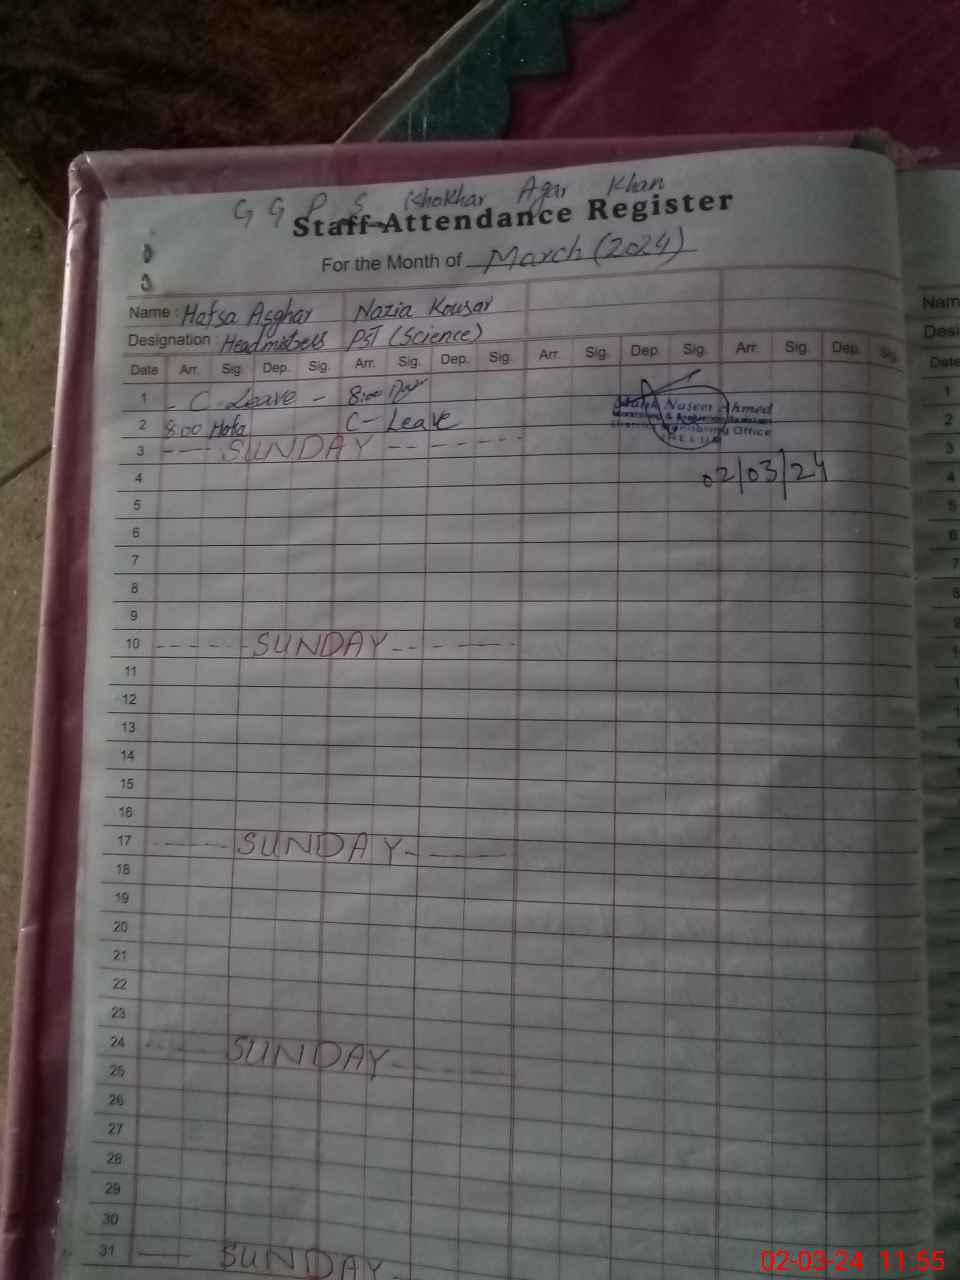 G G P S Khokhar Agar Khan
Staff Attendance Register
For the Month of March (2024)
Name : Hafsa Asghar Nazia Kousar
Designation : Headmistress PST (Science)
Date Arr. Sig. Dep. Sig. Arr. Sig. Dep. Sig. Arr. Sig. Dep. Sig. Arr. Sig. Dep. Sig.
1 - C-Leave - 8:00
2 8:00 C-Leave
Naseem Ahmed
Office
JHELUM
3 SUNDAY
02/03/24
4
5
6
7
8
9
10 SUNDAY
11
12
13
14
15
16
17 SUNDAY
18
19
20
21
22
23
24 SUNDAY
25
26
27
28
29
30
31 SUNDAY
Nam
Desi
Date
1
2
3
4
5
6
7
8
9
02-03-24 11:55